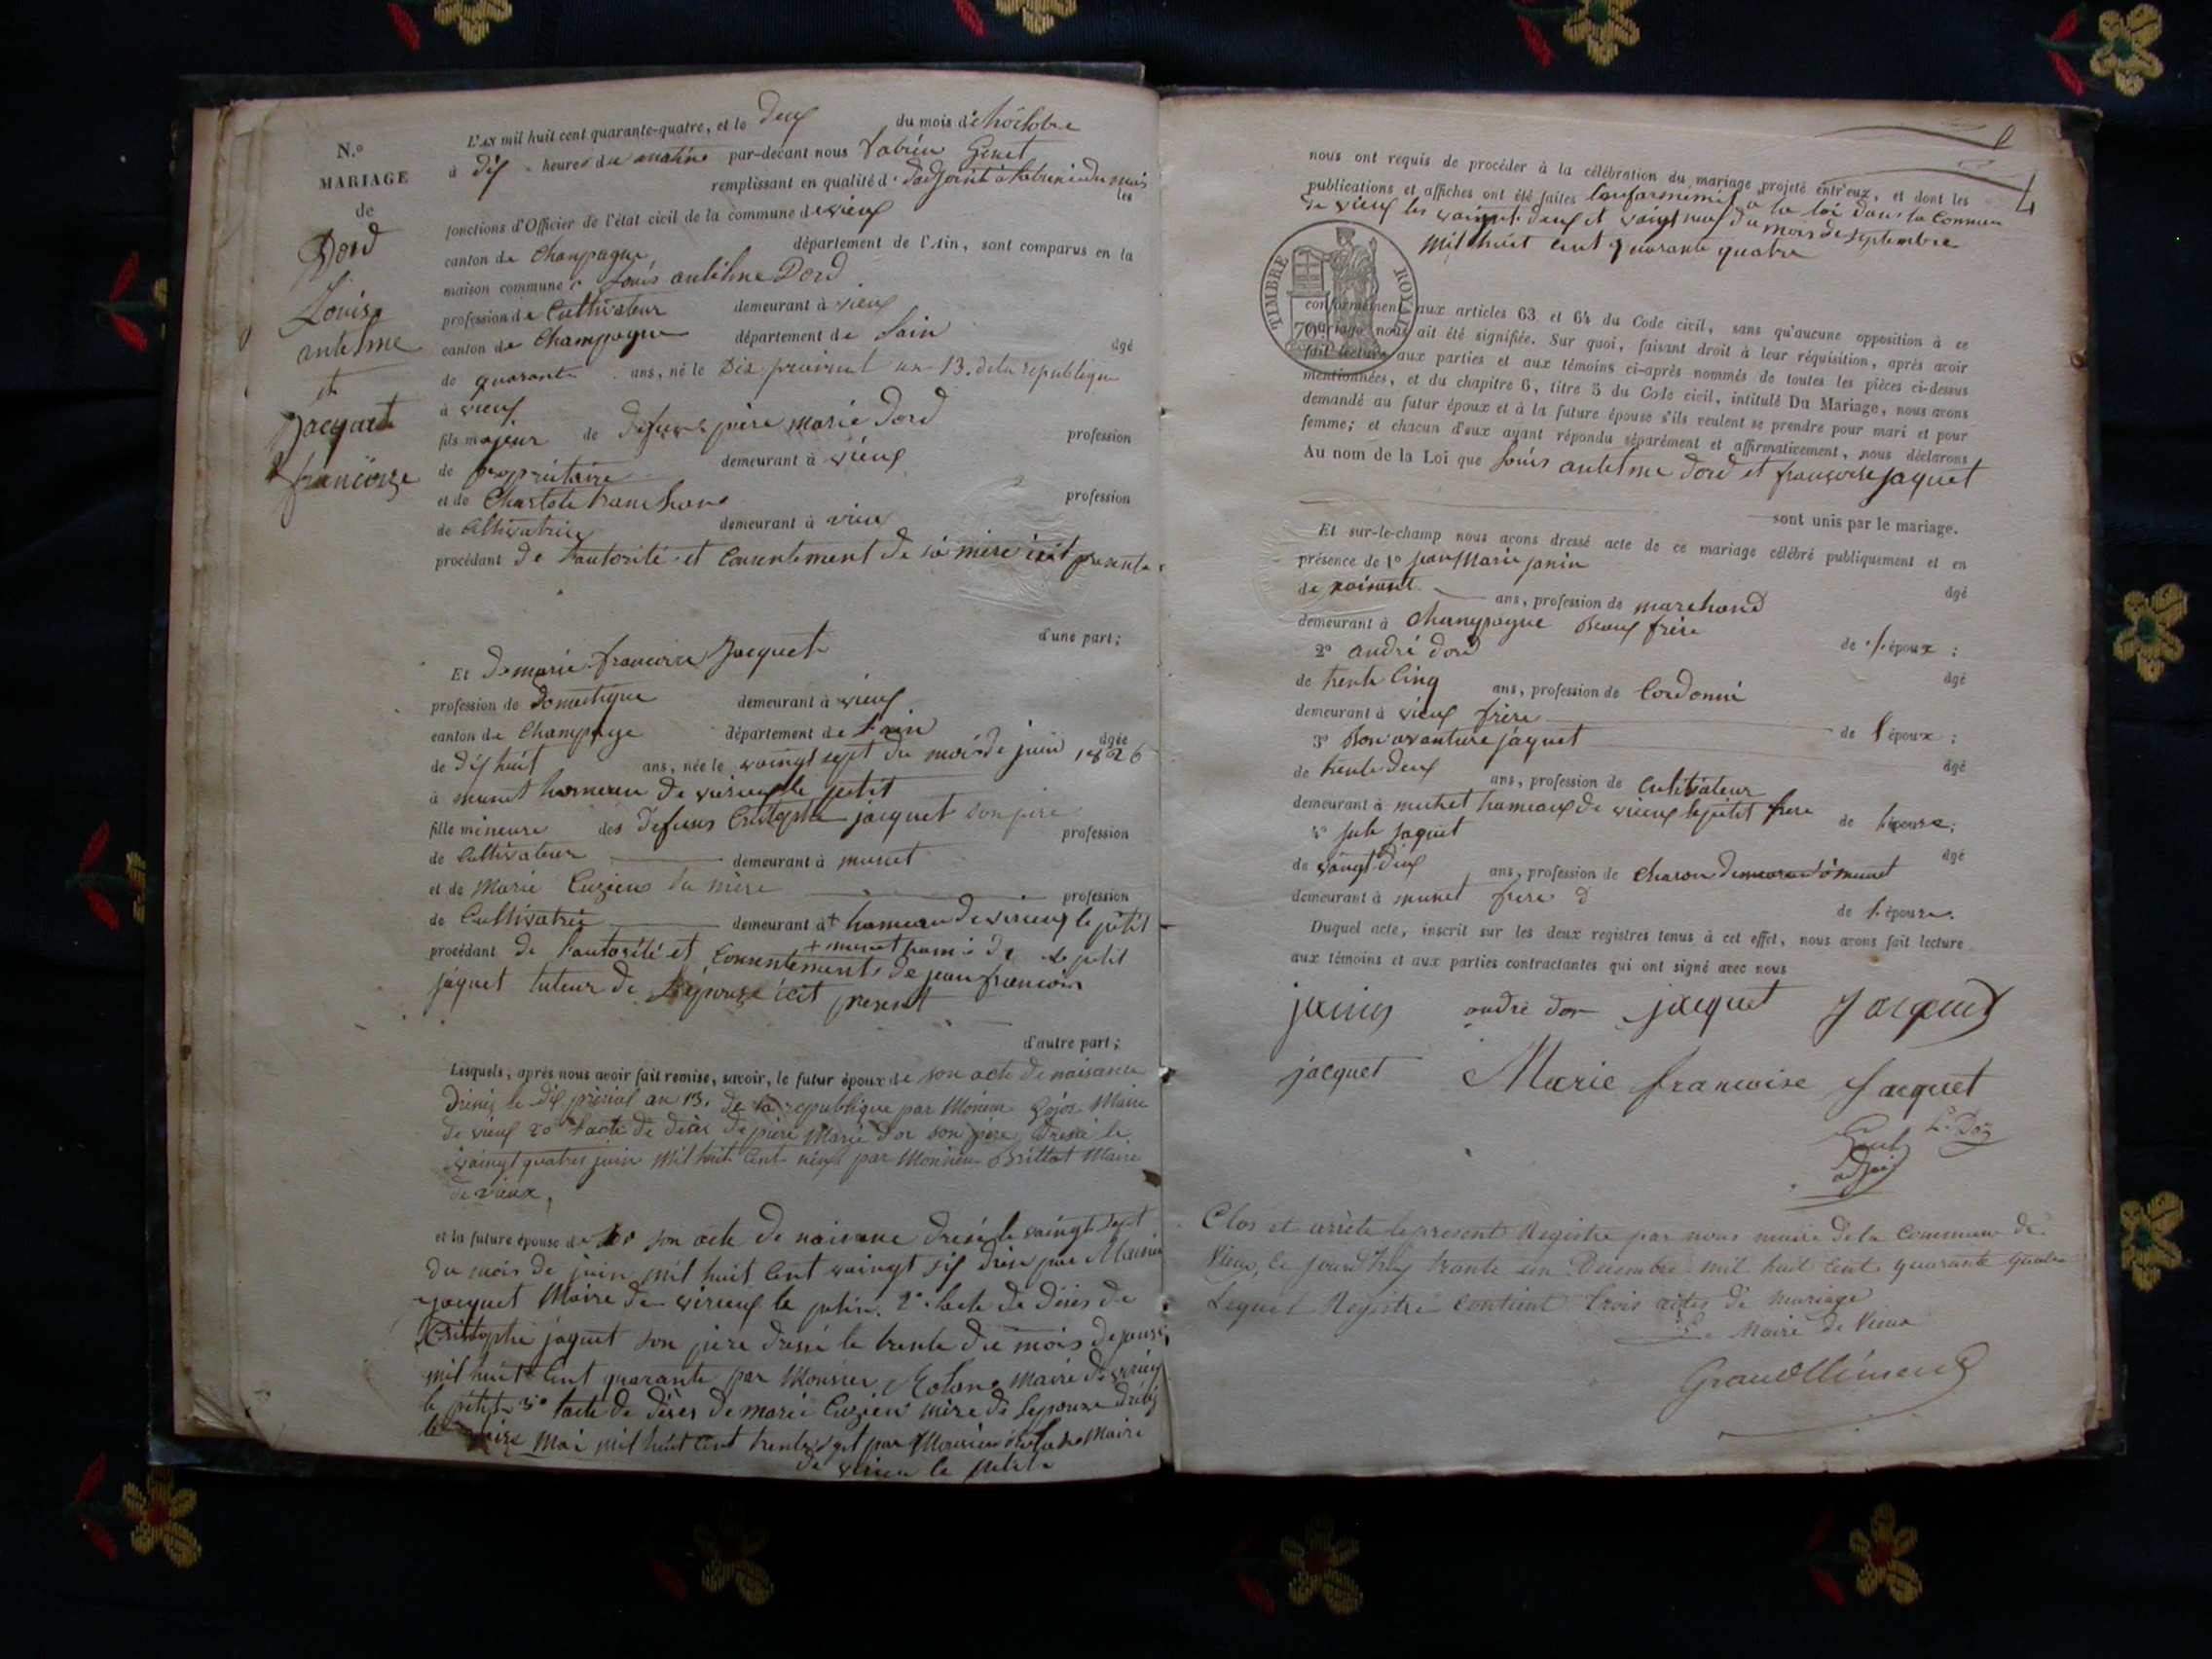 N.o
MARIAGE
de
Dord
Louis
antelme
et
Jacquet
françoise
L'AN mil huit cent quarante-quatre, et le deux du mois d'hoctobre
à dix heures du matin par-devant nous fabien Genet
remplissant en qualité d'adjoint les
fonctions d'Officier de l'état civil de la commune de vieux
canton de Champagne département de l'Ain, sont comparus en la
maison commune : Louis antelme Dord
profession de Cultivateur demeurant à vieux
canton de Champagne département de Lain âgé
de quarante ans, né le Dix prairial an 13. de la republique
à vieux
fils majeur de défunt pière marie dord profession
de propriétaire demeurant à vieux
et de Charlote profession
de Cultivatrice demeurant à vieux
procédant de l'autorité et Consentement de sa mère icit presente
d'une part;
Et de marie françoise Jacquet
profession de Domestique demeurant à vieux
canton de Champagne département de Lain âgée
de dix huit ans, née le vaingt sept du mois de juin 1826
à munet hameau de virieux le petit
fille mineure des defuns Cristophe jacquet son père profession
de Cultivateur demeurant à munet
et de Marie Cuzieu sa mère profession
de Cultivatrice demeurant à + hameau de virieux le petit
+ munet ham de le petit
procédant de l'autorité et Consentement de jean françois
jaquet tuteur de L'épouse icit present
d'autre part;
Lesquels, après nous avoir fait remise, savoir, le futur époux de son acte de naisance
Dressé le dix prérial an 13. de la republique par Monieur Gojoz Maire
de vieux 2o l'acte de désès de pière Marie dor son père Dressé le
vaingt quatres juin mil huit Cent neuf par Monsieur Brillat Maire
de vieux,
et la future épouse de son acte de naisance dressé le vaingt sept
du mois de juin mil huit Cent vaingt six dréssé par Monsieur
jacquet Maire de virieux le petit. 2o lacte de désès de
Cristophe jaquet son père dressé le trente du mois de
mil huit Cent quarante par Monsieur Maire de virieux
le petit 3o lacte de désès de marie Cuzieu mère de Lepouse dréssé
le mai mil huit Cent trente sept par Monsieur Maire
de virieu le petit
4
nous ont requis de procéder à la célébration du mariage projeté entr'eux, et dont les
publications et affiches ont été faites Conformément à la loi dans la Commune
de vieux les vaingt deux et vaingt neuf du mois de septembre
mil huit Cent quarante quatre
TIMBRE ROYAL
conformément aux articles 63 et 64 du Code civil, sans qu'aucune opposition à ce
mariage nous ait été signifiée. Sur quoi, faisant droit à leur réquisition, après avoir
fait lecture aux parties et aux témoins ci-après nommés de toutes les pièces ci-dessus
mentionnées, et du chapitre 6, titre 5 du Code civil, intitulé Du Mariage, nous avons
demandé au futur époux et à la future épouse s'ils veulent se prendre pour mari et pour
femme; et chacun d'eux ayant répondu séparément et affirmativement, nous déclarons
Au nom de la Loi que Louis antelme dord et françoise jaquet
sont unis par le mariage.
Et sur-le-champ nous avons dressé acte de ce mariage célébré publiquement et en
présence de 1o jean Marie janin âgé
de ans, profession de marchand
demeurant à Champagne Beaux frère de l'époux ;
2o andré dord âgé
de trente Cinq ans, profession de Cordonié
demeurant à vieux frère de l'époux ;
3o Bonavanture jaquet âgé
de trente deux ans, profession de Cultivateur
demeurant à munet hameaux de virieux le petit frère de l'épouse;
4o jule jaquet âgé
de vaingt deux ans, profession de Charon demeurant à munet
demeurant à munet frère d de l'épouse.
Duquel acte, inscrit sur les deux registres tenus à cet effet, nous avons fait lecture
aux témoins et aux parties contractantes qui ont signé avec nous
janin andré dor jacquet Jacquet
jacquet Marie francoise Jacquet
L. Dor
Genet
adjoint
Clos et arrêté le present Registre par nous maire de la Commune de
Vieux, ce jourd'huy trente un Decembre mil huit Cent quarante quatre
Lequel Registre Contient trois actes de mariage
Le Maire de Vieux
Grandclément